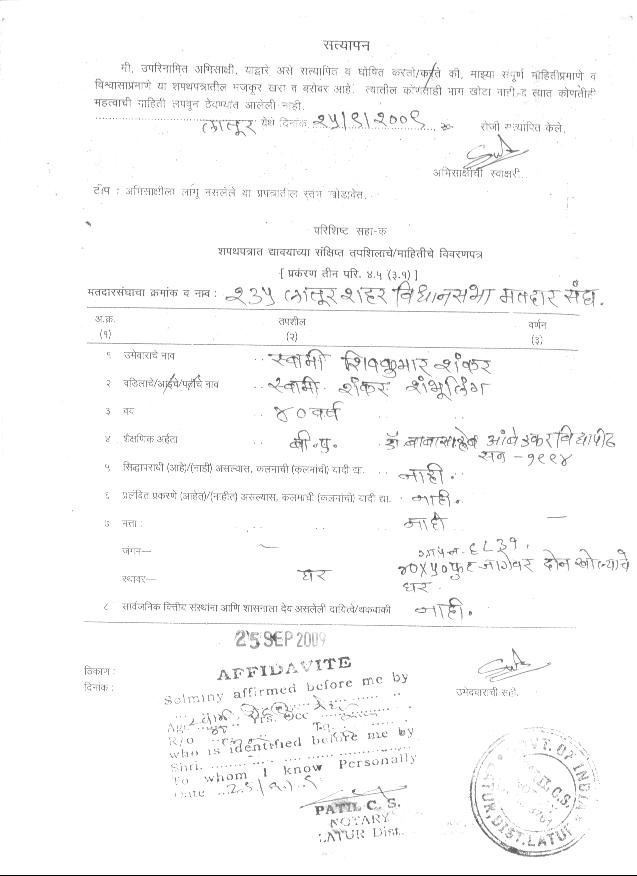 सत्यापन
मी, उपरिनामित अभिसाक्षी, याद्वारे असे सत्यापित व घोषित करतो/करते की, माझ्या संपूर्ण माहितीप्रमाणे व
विश्वासाप्रमाणे या शपथपत्रातील मजकूर खरा व बरोबर आहे. त्यातील कोणताही भाग खोटा नाही व त्यात कोणतीही
महत्वाची माहिती लपवून ठेवण्यात आलेली नाही.
लातूर येथे दिनांक २५/९/२००९ रोजी सत्यापित केले.
अभिसाक्षीची स्वाक्षरी.
टीप : अभिसाक्षीला लागू नसलेले या प्रपत्रातील स्तंभ खोडावेत.
परिशिष्ट सहा-क
शपथपत्रात द्यावयाच्या संक्षिप्त तपशिलाचे/माहितीचे विवरणपत्र
[ प्रकरण तीन परि. ४.५ (३.१) ]
मतदारसंघाचा क्रमांक व नाव : २३५ लातूर शहर विधानसभा मतदार संघ.
अ.क्र. तपशील वर्णन
(१) (२) (३)
१ उमेवाराचे नाव .. स्वामी शिवकुमार शंकर
२ वडिलाचे/आईचे/पतीचे नाव .. स्वामी शंकर शंभूलिंग
३ वय .. ४० वर्ष
४ शैक्षणिक अर्हता .. बी.ए. डॉ बाबासाहेब आंबेडकर विद्यापीठ
सन - १९९४
५ सिद्धापराधी (आहे)/(नाही) असल्यास, कलमाची (कलमांची) यादी द्या. नाही..
६ प्रलंबित प्रकरणे (आहेत)/(नाहीत) असल्यास, कलमाची (कलमांची) यादी द्या. नाही.
७ मत्ता : नाही —
जंगम— —
६८३१.
स्थावर— .. घर ४०X५० फुट जागेवर दोन खोल्याचे
घर.
८ सार्वजनिक वित्तीय संस्थांना आणि शासनाला देय असलेली दायित्वे/थकबाकी नाही.
25 SEP 2009
ठिकाण :
दिनांक :
उमेदवाराची सही.
AFFIDAVITE
Solminy affirmed before me by
Age Yrs. Occ
R/o Tq.
who is identified before me by
Shri.
To whom I know Personally
Date 25/9/09
PATIL C. S.
NOTARY
LATUR Dist.
GOVT. OF INDIA
LATUR, DIST. LATUR